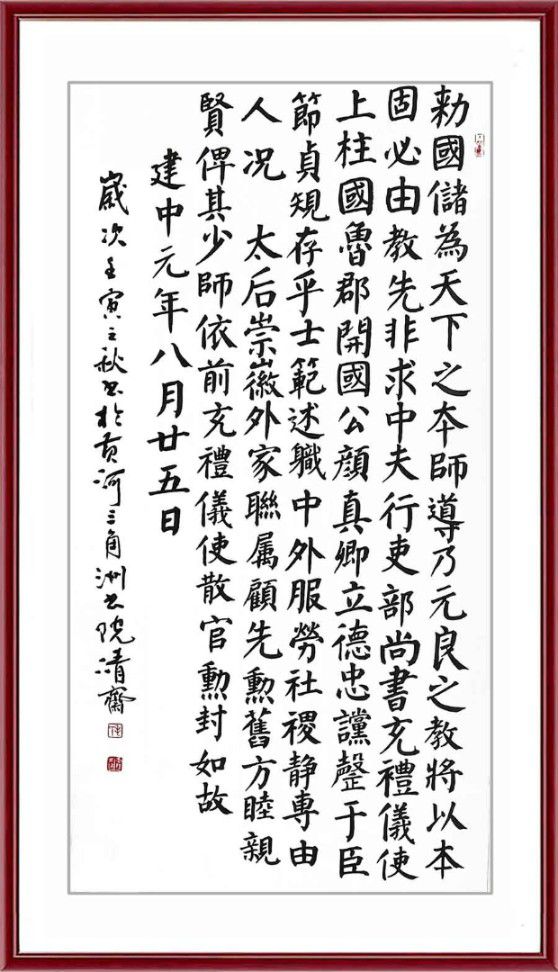 勅國儲為天下之夲師導乃元良之教將以本
固必由教先非求中夫行吏部尚書充禮儀使
上柱國魯郡開國公顏真卿立德忠讜罄于臣
節貞䂓存乎士範述職中外服勞社稷静專由
人况 太后崇徽外家聯属顧先勳舊方睦親
賢俾其少師依前充禮儀使散官勳封如故
建中元年八月廿五日
歲次壬寅之秋书於黄河三角洲书院清齋